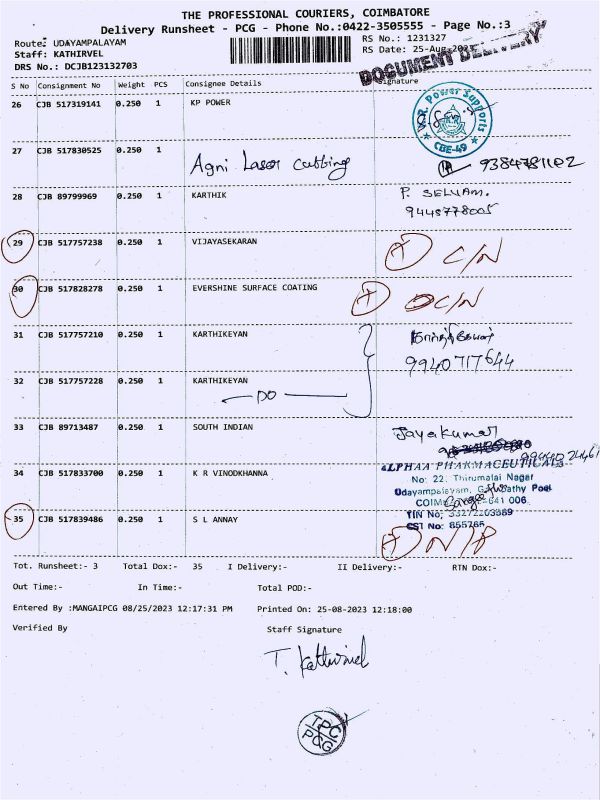 THE PROFESSIONAL COURIERS, COIMBATORE
Delivery Runsheet - PCG - Phone No.:0422-3505555 - Page No.:3
Route: UDAYAMPALAYAM
Staff: KATHIRVEL
DRS No.: DCJB123132703
RS No.: 1231327
RS Date: 25-Aug-2023
DOCUMENT DELIVERY
S No Consignment No Weight PCS Consignee Details Signature
26 CJB 517319141 0.250 1 KP POWER
V.R. Power Supports
CBE-49
27 CJB 517830525 0.250 1 Agni Laser Cutting 9384781102
28 CJB 89799969 0.250 1 KARTHIK P. SELVAM.
9448778005
29 CJB 517757238 0.250 1 VIJAYASEKARAN C/N
30 CJB 517828278 0.250 1 EVERSHINE SURFACE COATING C/N
31 CJB 517757210 0.250 1 KARTHIKEYAN
9940717644
32 CJB 517757228 0.250 1 KARTHIKEYAN
DO
33 CJB 89713487 0.250 1 SOUTH INDIAN Jayakumar
34 CJB 517833700 0.250 1 K R VINODKHANNA ALPHAA PHARMACEUTICALS
No: 22, Thirumalai Nagar
Udayampalayam, Post
641 006.
TIN No: 33272203589
CST No: 855765
35 CJB 517839486 0.250 1 S L ANNAY
Tot. Runsheet:- 3 Total Dox:- 35 I Delivery:- II Delivery:- RTN Dox:-
Out Time:- In Time:- Total POD:-
Entered By :MANGAIPCG 08/25/2023 12:17:31 PM Printed On: 25-08-2023 12:18:00
Verified By Staff Signature
T. Kathirvel
TPC
PCG